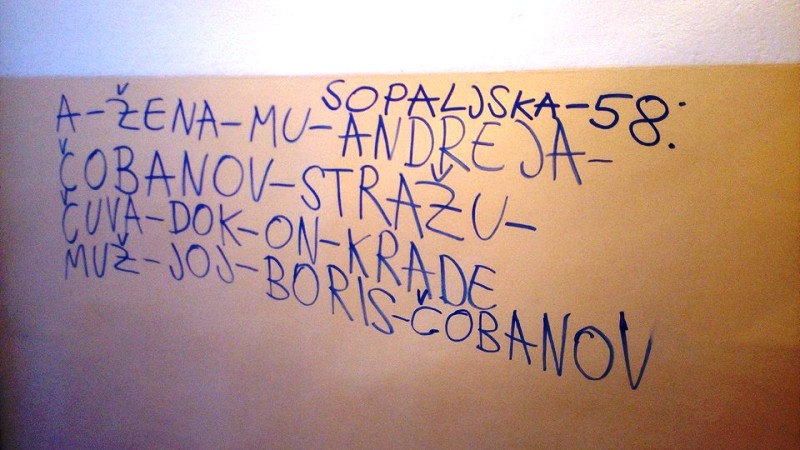 SOPALJSKA-58:
A-ŽENA-MU-ANDREJA-
ČOBANOV-STRAŽU-
ČUVA-DOK-ON-KRADE
MUŽ-JOJ-BORIS-ČOBANOV